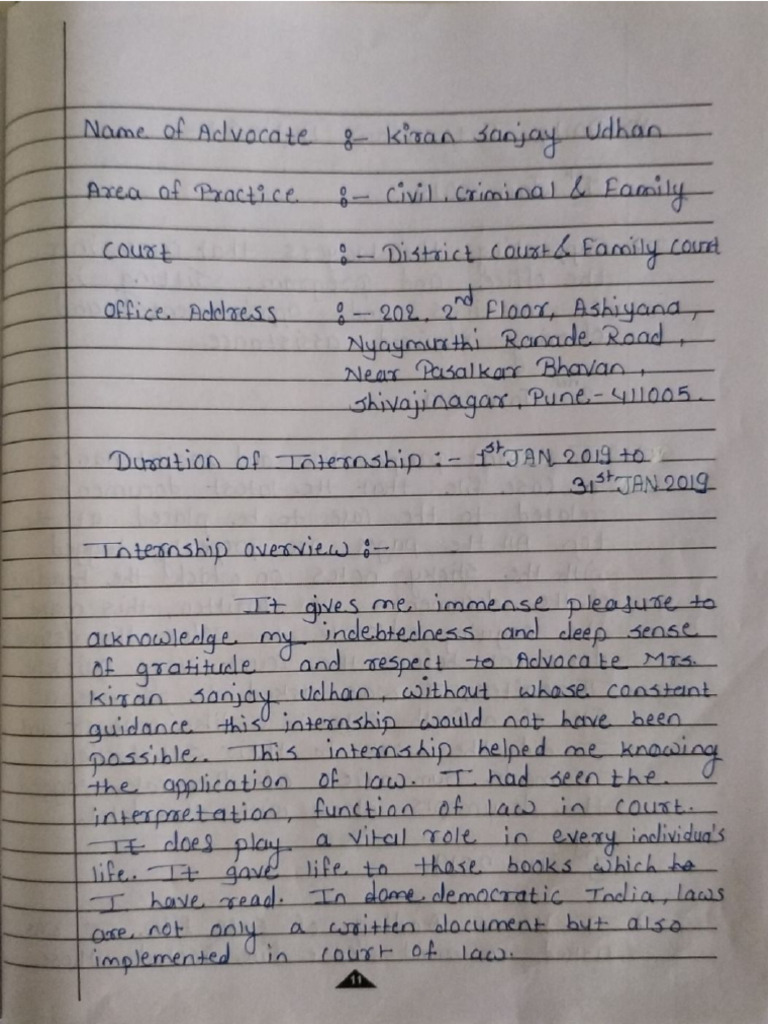 Name of Advocate :- Kiran Sanjay Udhan
Area of Practice :- Civil, Criminal & Family
Court :- District Court & Family Court
Office Address :- 202, 2nd Floor, Ashiyana,
Nyaymurthi Ranade Road,
Near Pasalkar Bhavan,
Shivajinagar, Pune-411005.
Duration of Internship :- 1st JAN 2019 to
31st JAN 2019
Internship overview :-
It gives me immense pleasure to
acknowledge my indebtedness and deep sense
of gratitude and respect to Advocate Mrs.
Kiran Sanjay Udhan, without whose constant
guidance this internship would not have been
possible. This internship helped me knowing
the application of law. I had seen the
interpretation, function of law in court.
It does play a vital role in every individua's
life. It gave life to those books which
I have read. In democratic India, laws
are not only a written document but also
implemented in court of law.
11